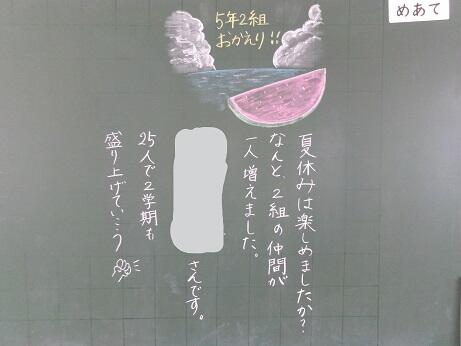 めあて
5年2組
おかえり!!
夏休みは楽しめましたか?
なんと、2組の仲間が
一人増えました。
さんです。
25人で2学期も
盛り上げていこう